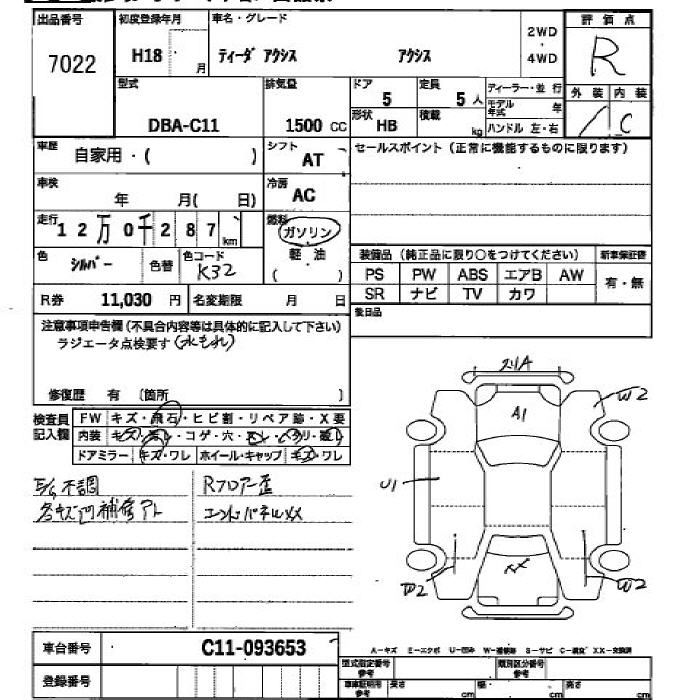 出品番号 初度登録年月 車名・グレード 評価点
7022 H18 月 ティーダ アクシス アクシス 2WD・4WD R
型式 排気量 ドア 定員 ディーラー・並行 外装 内装
DBA-C11 1500 CC 5 5人 モデル年式 年 C
形状 HB 積載 kg ハンドル 左・右
車歴 自家用・( ) シフト AT セールスポイント（正常に機能するものに限ります）
車検 年 月( 日) 冷房 AC
走行 12万0千287km 燃料 ガソリン
軽油
( )
色 シルバー 色替 色コード K32 装備品（純正品に限り○をつけてください） 新車保証書
PS PW ABS エアB AW 有・無
SR ナビ TV カワ
R券 11,030 円 名変期限 月 日 後日品
注意事項申告欄（不具合内容等は具体的に記入して下さい）
ラジエータ点検要す(水もれ)
修復歴 有 〔箇所 〕
検査員記入欄 FW キズ・飛石・ヒビ割・リペア跡・X要
内装 コゲ・穴
ドアミラー キズ・ワレ ホイール・キャップ キズ・ワレ
不調 Rフロアー歪
補修アト エンドパネルXX
A1
W2
U1
W2
W2
XX
A-キズ E-エクボ U-凹み W-補修跡 S-サビ C-腐食 XX-交換済
車台番号 C11-093653
型式指定番号 参考 類別区分番号 参考
登録番号 車車証明用 参考 長さ cm 幅 cm 高さ cm